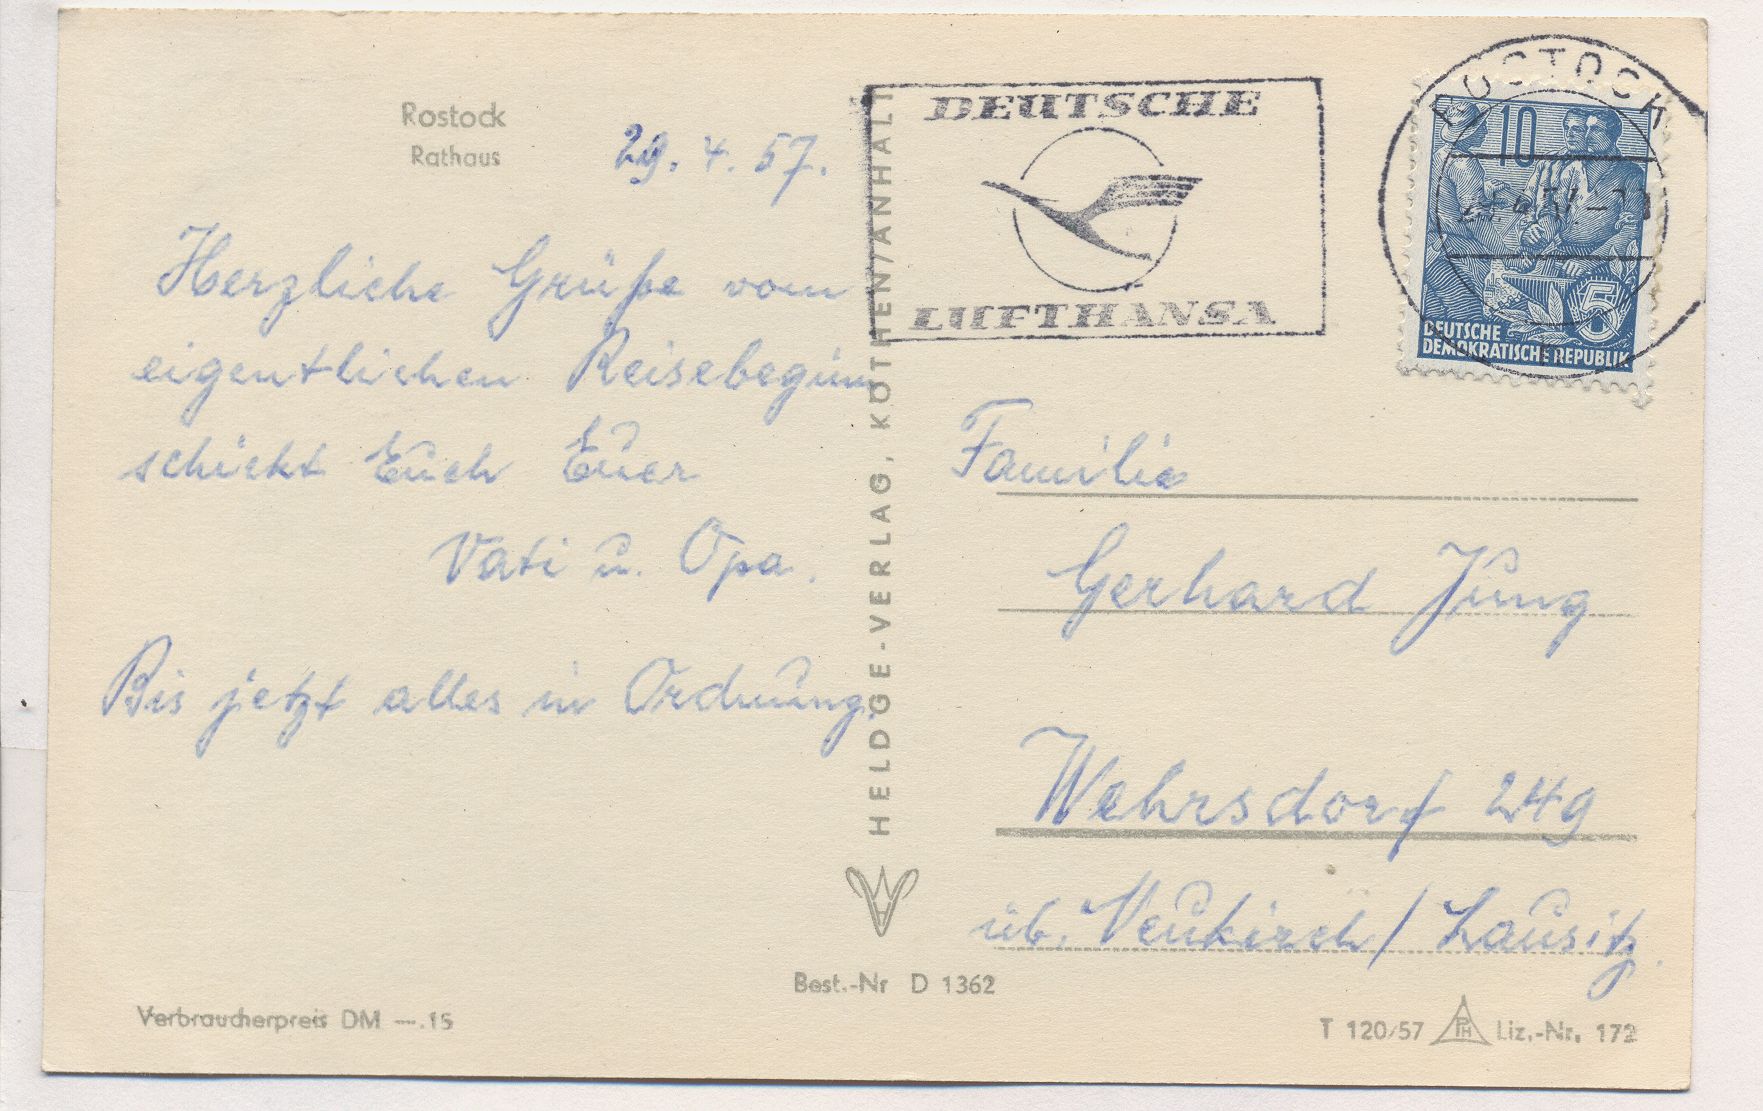 Rostock
Rathaus
29. 4. 57.
Herzliche Grüße vom
eigentlichen Reisebeginn
schickt Euch Euer
Vati u. Opa.
Bis jetzt alles in Ordnung.
Verbraucherpreis DM —.15
HELDGE-VERLAG, KÖTHEN/ANHALT
Best.-Nr D 1362
DEUTSCHE
LUFTHANSA
ROSTOCK
29.4.57
10
5
DEUTSCHE
DEMOKRATISCHE REPUBLIK
Familie
Gerhard Jung
Wehrsdorf 249
üb. Neukirch / Lausitz.
T 120/57 PH Liz.-Nr. 172